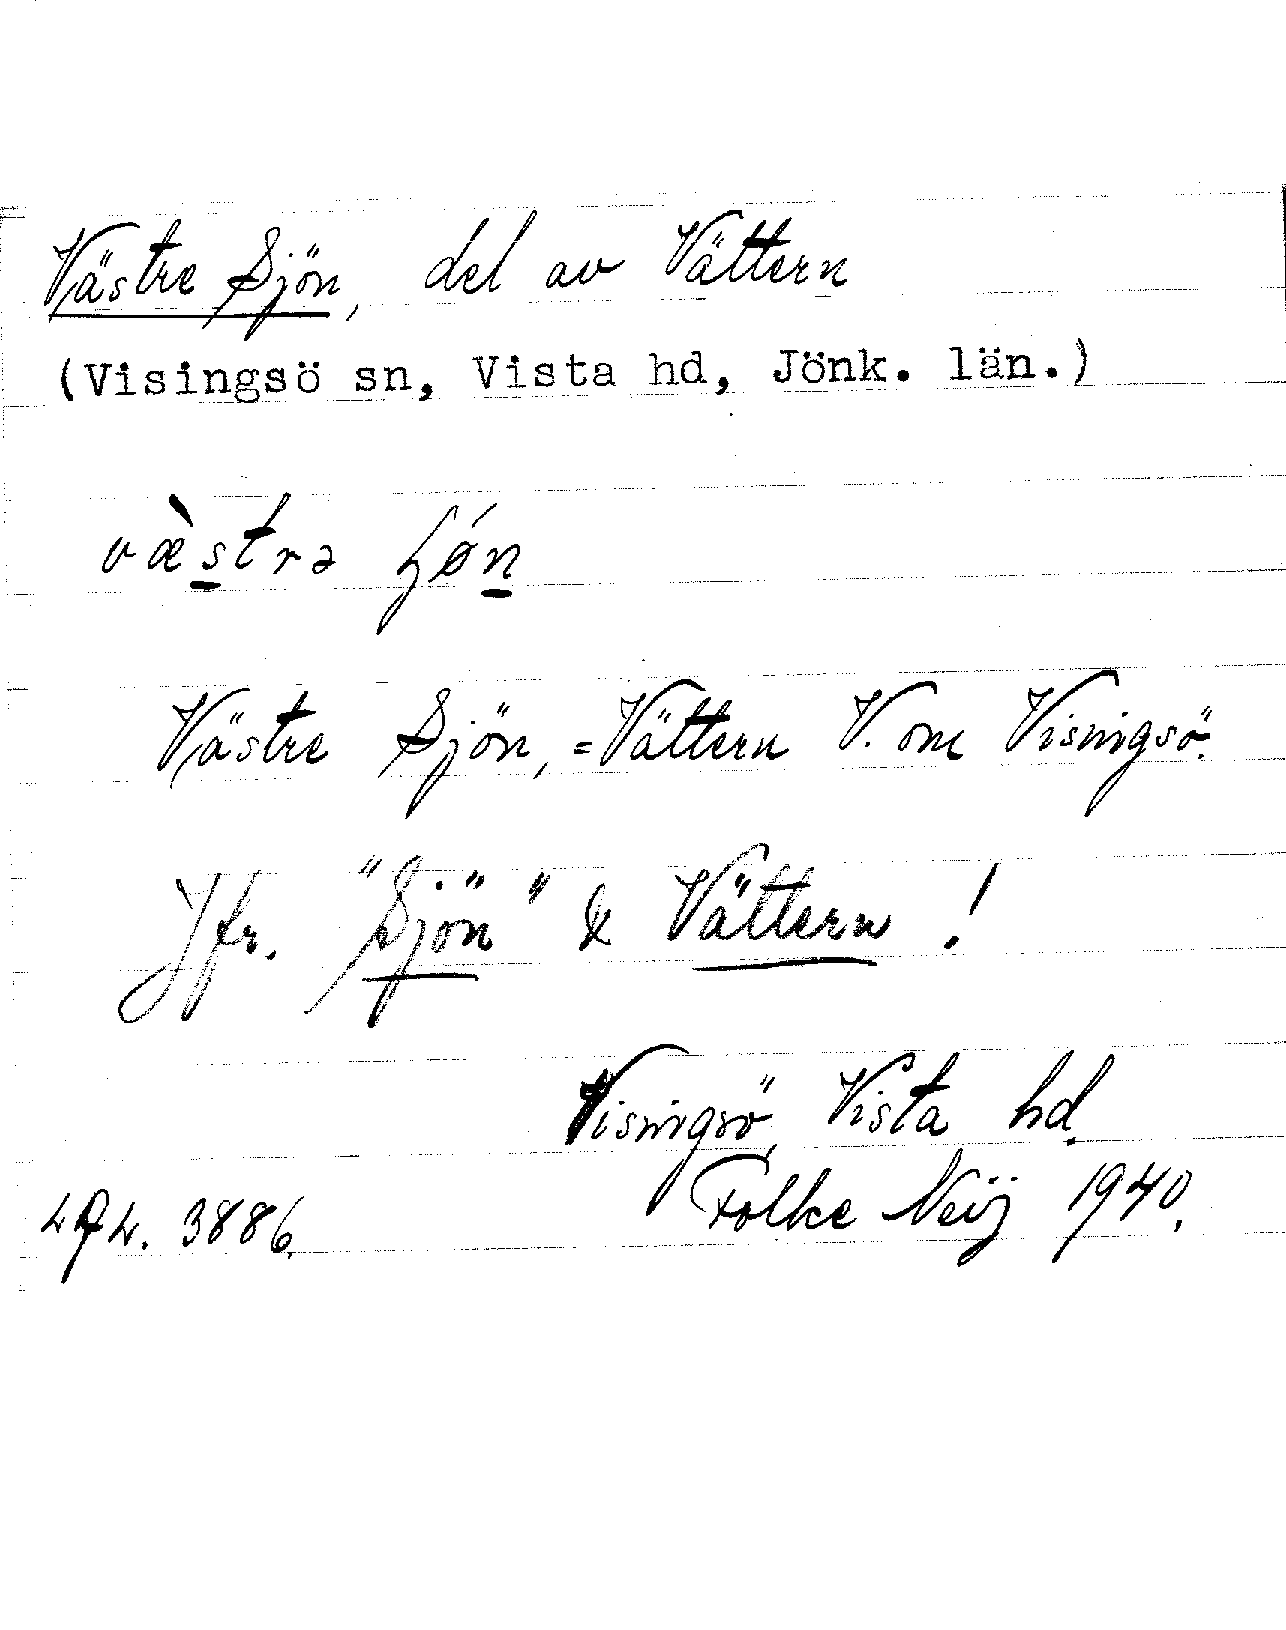 Västre Sjön, del av Vättern
(Visingsö sn, Vista hd, Jönk. län.)
væ̀strə ɧøn
Västre Sjön, = Vättern V. om Visingsö.
Jfr. "Sjön" & Vättern!
Visingsö, Vista hd.
Folke Neij 1940.
3886.